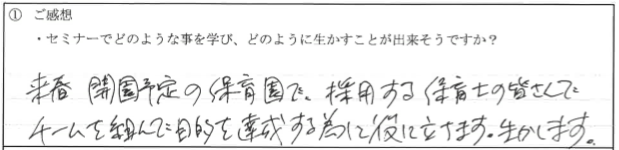 ① ご感想
・セミナーでどのような事を学び、どのように生かすことが出来そうですか？
来春 開園予定の保育園で、採用する保育士の皆さんで
チームを組んで目的を達成する為に役に立ちます。生かします。